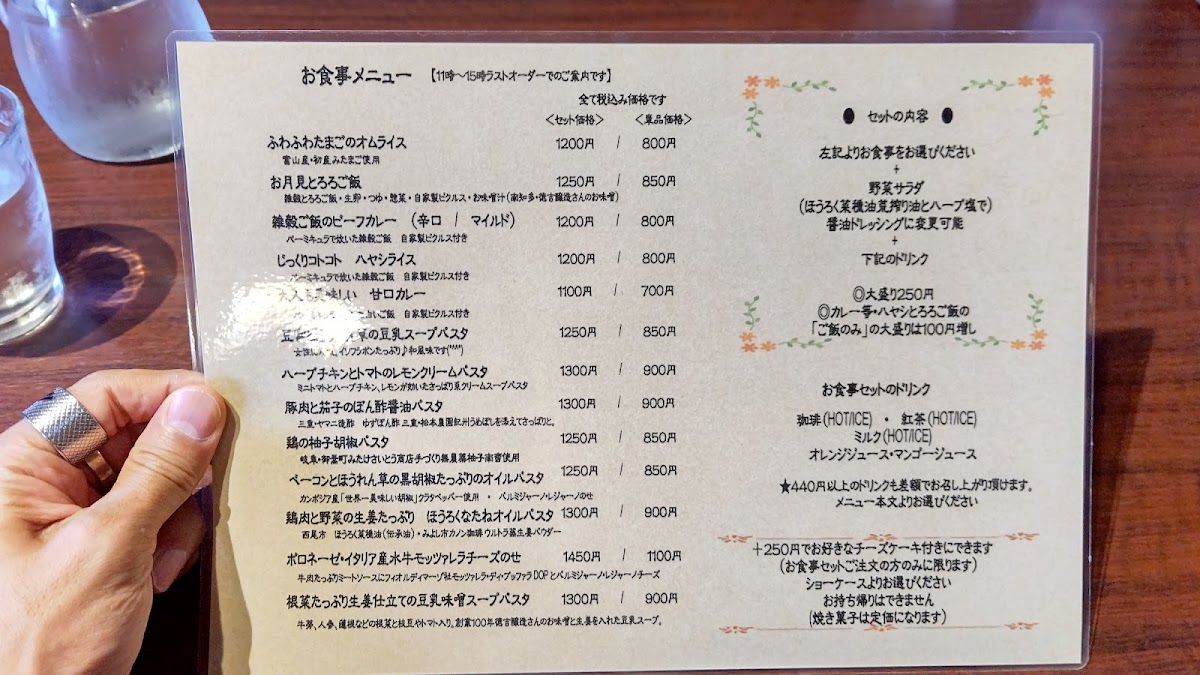 お食事メニュー 【11時～15時ラストオーダーでのご案内です】
全て税込み価格です
＜セット価格＞ ＜単品価格＞
ふわふわたまごのオムライス 1200円 / 800円
富山産・初産みたまご使用
お月見とろろご飯 1250円 / 850円
雑穀とろろご飯・生卵・つゆ・惣菜・自家製ピクルス・お味噌汁(南知多・徳吉醸造さんのお味噌)
雑穀ご飯のビーフカレー (辛口 / マイルド) 1200円 / 800円
バーミキュラで炊いた雑穀ご飯 自家製ピクルス付き
じっくりコトコト ハヤシライス 1200円 / 800円
バーミキュラで炊いた雑穀ご飯 自家製ピクルス付き
美味しい 甘口カレー 1100円 / 700円
白いご飯 自家製ピクルス付き
草の豆乳スープパスタ 1250円 / 850円
イソフラボンたっぷり♪和風味です(^^)
ハーブチキンとトマトのレモンクリームパスタ 1300円 / 900円
ミニトマトとハーブチキン、レモンが効いたさっぱり系クリームスープパスタ
豚肉と茄子のぽん酢醤油パスタ 1300円 / 900円
三重・ヤマニ造酢 ゆずぽん酢 三重・柏本農園紀州うめぼしを添えてさっぱりと。
鶏の柚子胡椒パスタ 1250円 / 850円
岐阜・御嵩町みたけさいとう商店手づくり無農薬柚子南蛮使用
ベーコンとほうれん草の黒胡椒たっぷりのオイルパスタ 1250円 / 850円
カンボジア産「世界一美味しい胡椒」クラタペッパー使用 ・ パルミジャーノ・レジャーノのせ
鶏肉と野菜の生姜たっぷり ほうろくなたねオイルパスタ 1300円 / 900円
西尾市 ほうろく菜種油(伝承油)・みよし市カノン珈琲ウルトラ蒸生姜パウダー
ボロネーゼ・イタリア産水牛モッツァレラチーズのせ 1450円 / 1100円
牛肉たっぷりミートソースにフィオルディマーゾ社モッツァレラ・ディ・ブッファラDOPとパルミジャーノ・レジャーノチーズ
根菜たっぷり生姜仕立ての豆乳味噌スープパスタ 1300円 / 900円
牛蒡、人参、蓮根などの根菜と枝豆やトマト入り。創業100年徳吉醸造さんのお味噌と生姜を入れた豆乳スープ。
● セットの内容 ●
左記よりお食事をお選びください
+
野菜サラダ
(ほうろく菜種油荒搾り油とハーブ塩で)
醤油ドレッシングに変更可能
+
下記のドリンク
◎大盛り250円
◎カレー等・ハヤシとろろご飯の
「ご飯のみ」の大盛りは100円増し
お食事セットのドリンク
珈琲(HOT/ICE) ・ 紅茶(HOT/ICE)
ミルク(HOT/ICE)
オレンジジュース・マンゴージュース
★440円以上のドリンクも差額でお召し上がり頂けます。
メニュー本文よりお選びください
+250円でお好きなチーズケーキ付きにできます
(お食事セットご注文の方のみに限ります)
ショーケースよりお選びください
お持ち帰りはできません
(焼き菓子は定価になります)